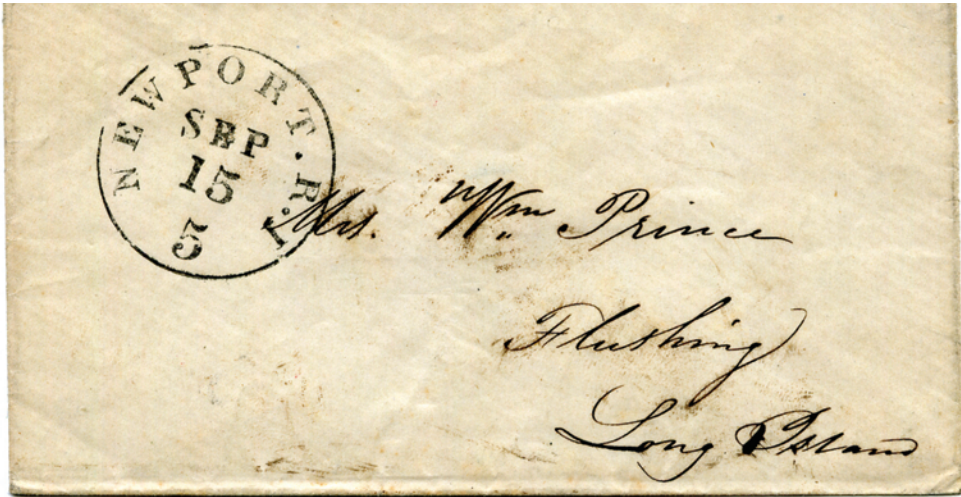 NEWPORT. R. I.
SEP
15
5
Mrs. Wm Prince
Flushing
Long Island